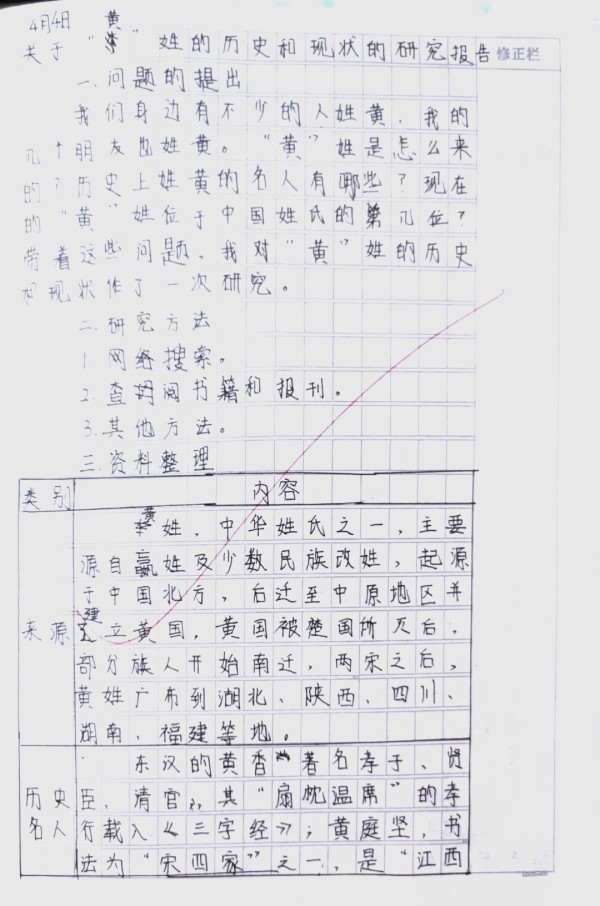 4月4日
关于"黄"姓的历史和现状的研究报告 修正栏
一.问题的提出
我们身边有不少的人姓黄，我的
几个朋友也姓黄。"黄"姓是怎么来
的？历史上姓黄的名人有哪些？现在
的"黄"姓位于中国姓氏的第几位？
带着这些问题，我对"黄"姓的历史
和现状作了一次研究。
二.研究方法
1.网络搜索。
2.查阅书籍和报刊。
3.其他方法。
三.资料整理
类别 内容
黄姓，中华姓氏之一，主要
源自嬴姓及少数民族改姓，起源
于中国北方，后迁至中原地区并
来源 建立黄国，黄国被楚国所灭后，
部分族人开始南迁，两宋之后，
黄姓广布到湖北、陕西、四川、
湖南、福建等地。
东汉的黄香著名孝子、贤
历史 臣，清官，其"扇枕温席"的孝
名人 行载入《三字经》；黄庭坚，书
法为"宋四家"之一，是"江西